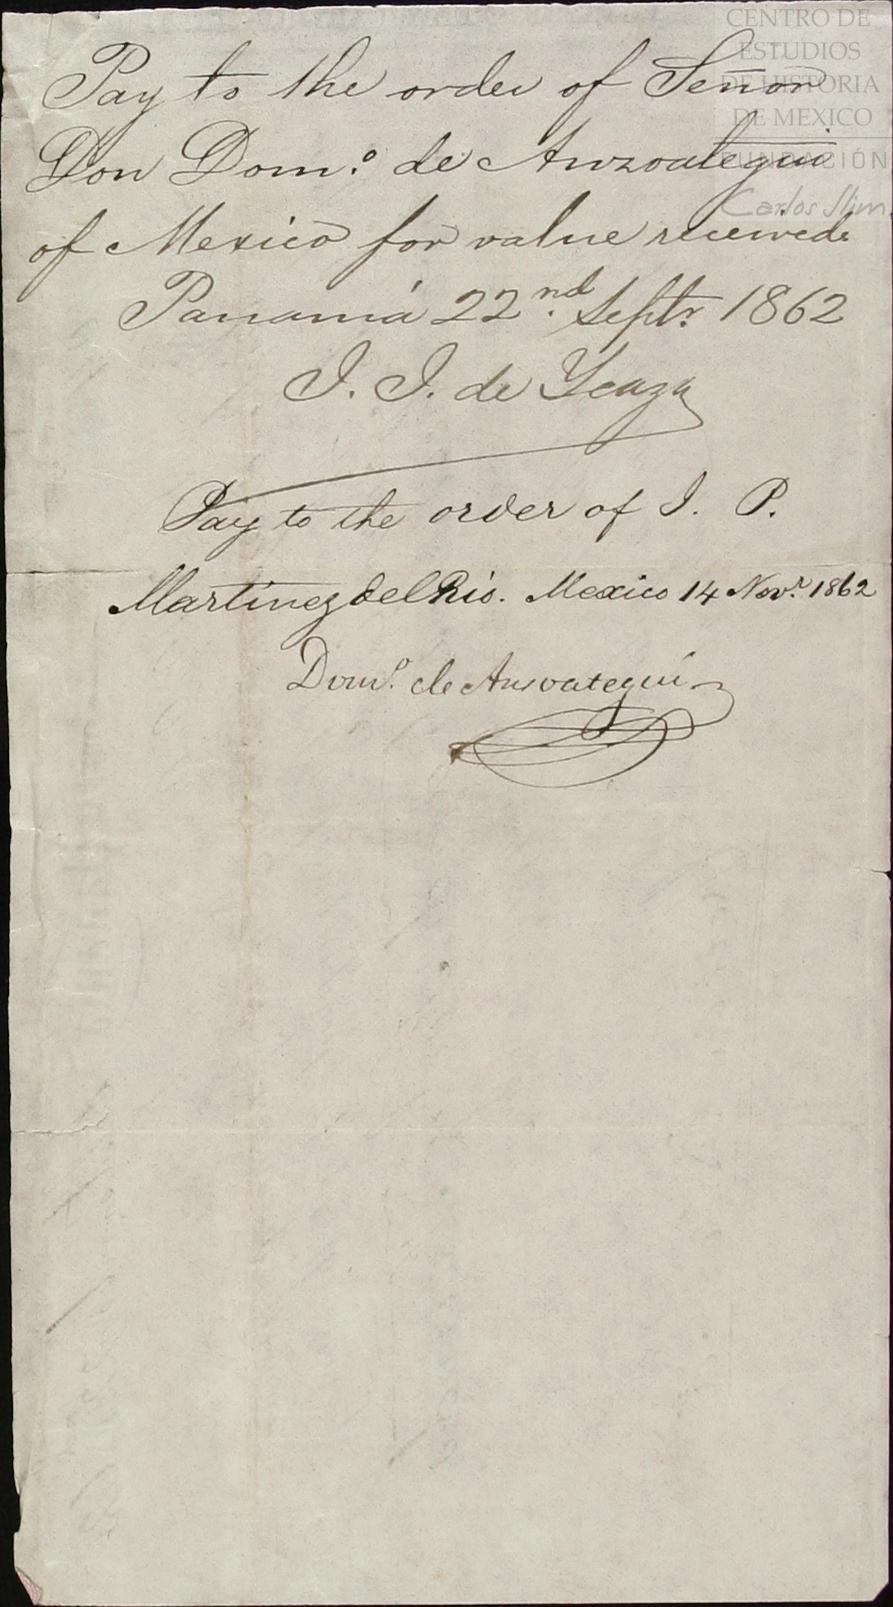 CENTRO DE
ESTUDIOS
DE HISTORIA
DE MEXICO
FUNDACIÓN
Carlos Slim
Pay to the order of Señor
Don Dom.º de Anzoategui
of Mexico for value received
Panamá 22.nd Septr. 1862
J. J. de Ycaza
Pay to the order of J. P.
Martinez del Rio. Mexico 14 Nov.r 1862
Dom.º de Ansoategui